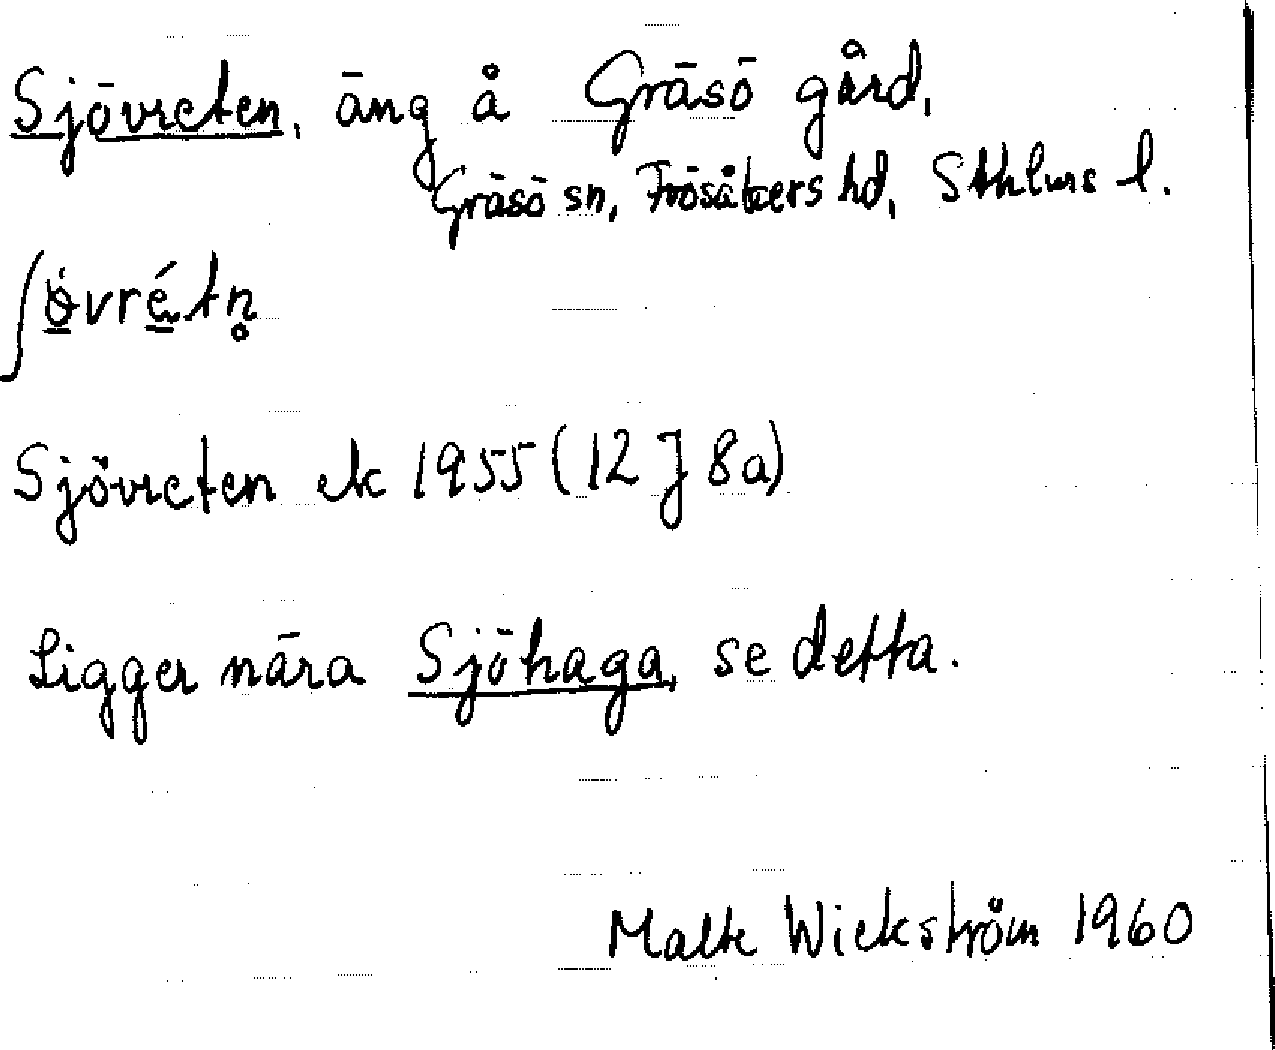 Sjövreten, äng å Gräsö gård,
Gräsö sn, Frösåkers hd, Sthlms l.
Sjövreten ek 1955 (12 J 8a)
Ligger nära Sjöhaga, se detta.
Malte Wickström 1960